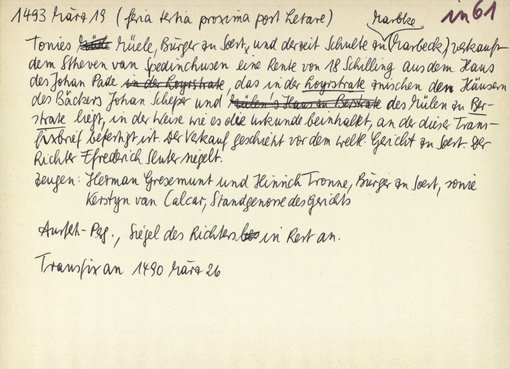 1493 März 19 (feria tertia proxima post Letare) in 61
Marbke
Tonies Müele, Bürger zu Soest, und derzeit Schulte zu (Marbeck) verkauft
dem Stheven van Spedinchusen eine Rente von 18 Schilling aus dem Haus
des Johan Pade in der Loyrstrate, das in der Loyrstrate zwischen den Häusern
des Bäckers Johan Scheper und Mulen's Haus zu Berstrate des Mulen zu Ber-
strate liegt, in der Weise wie es die Urkunde beinhaltet, an der dieser Trans-
fixbrief befestigt ist. Der Verkauf geschieht vor dem weltl. Gericht zu Soest. Der
Richter Ffrederich Sluter siegelt.
Zeugen: Herman Gresemunt und Hinrich Tronne, Bürger zu Soest, sowie
Kerstyn van Calcar, Standgenosse des Gerichts
Ausf.-Pag., Siegel des Richters in Rest an.
Transfix an 1490 März 26